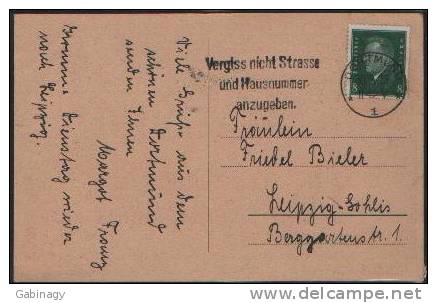 Viele Grüße aus dem
schönen Dortmund
senden Ihnen
Margot Franz
Komme Dienstag wieder
nach Leipzig.
Vergiss nicht Strasse
und Hausnummer
anzugeben.
DORTMUND
1
8 8
Fräulein
Friedel Bieler
Leipzig-Gohlis
Berggartenstr. 1.
Gabinagy
www.delcampe.net